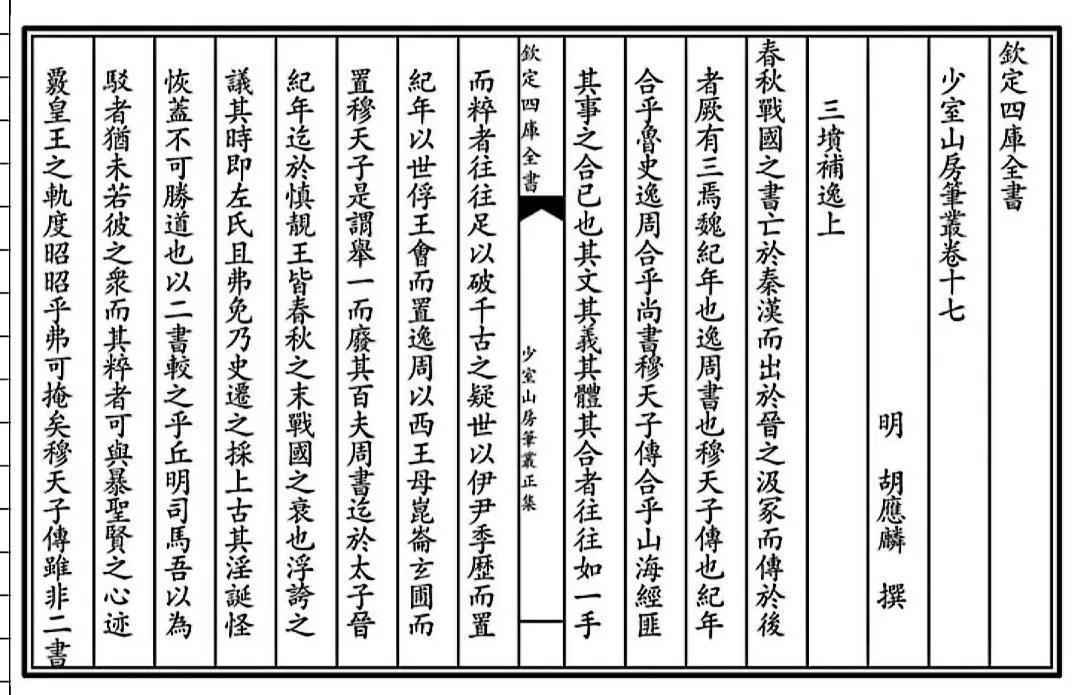 欽定四庫全書
少室山房筆叢卷十七
明 胡應麟 撰
三墳補逸上
春秋戰國之書亡於秦漢而出於晉之汲冢而傳於後
者厥有三焉魏紀年也逸周書也穆天子傳也紀年
合乎魯史逸周合乎尚書穆天子傳合乎山海經匪
其事之合已也其文其義其體其合者往往如一手
欽定四庫全書
少室山房筆叢正集
而粹者往往足以破千古之疑世以伊尹季歷而置
紀年以世俘王會而置逸周以西王母崑崙玄圃而
置穆天子是謂舉一而廢其百夫周書迄於太子晉
紀年迄於慎靚王皆春秋之末戰國之衰也浮誇之
議其時即左氏且弗免乃史遷之採上古其淫誕怪
恢蓋不可勝道也以二書較之乎丘明司馬吾以為
駁者猶未若彼之衆而其粹者可與暴聖賢之心迹
覈皇王之軌度昭昭乎弗可掩矣穆天子傳雖非二書